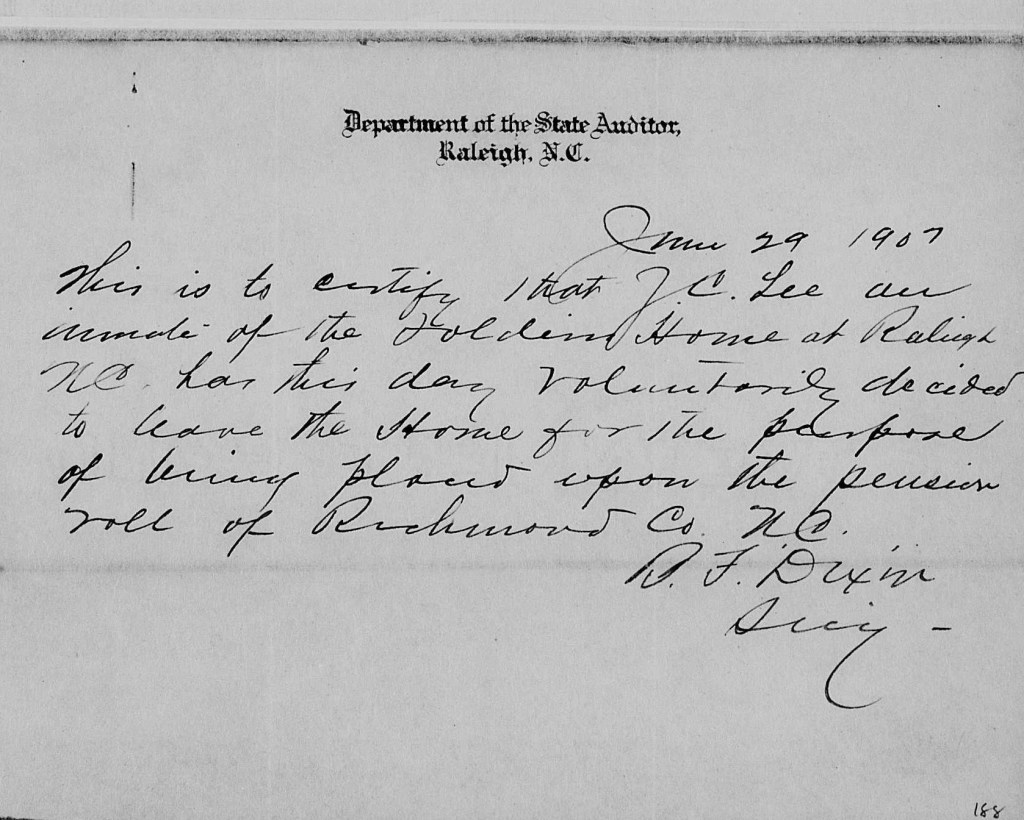 Department of the State Auditor,
Raleigh, N.C.
June 29 1907
This is to certify that J.C. Lee an
inmate of the Soldiers Home at Raleigh
NC. has this day voluntarily decided
to leave the Home for the purpose
of being placed upon the pension
roll of Richmond Co. N.C.
B. F. Dixon
Secy -
188